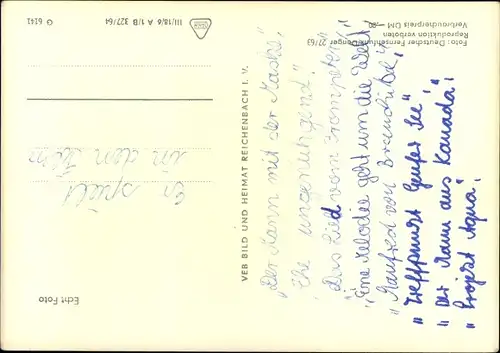 Er spielt
in dem Film
„Der Mann mit der Maske“
„Ehe ungenügend“
„Das Lied vom Trompeter“
„Eine Melodie geht um die Welt“
„Manfred von Brendübel“
„Treffpunkt Genfer See“
„Der Mann aus Kanada“
„Projekt Aqua“
VEB BILD UND HEIMAT REICHENBACH I. V.
Echt Foto
G 6242
III/18/6 A 1/B 327/64
Foto: Deutscher Fernsehfunk/Denger 27/63
Reproduktion verboten
Verbraucherpreis DM -,20